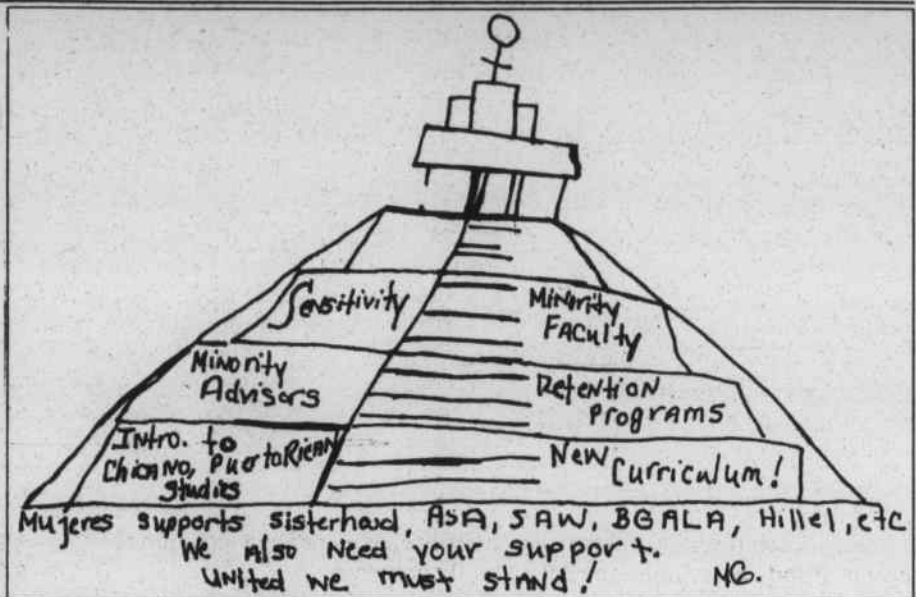 Sensitivity
Minority
Faculty
Minority
Advisors
Retention
Programs
Intro. to
Chicano, PuertoRican
Studies
New
Curriculum!
Mujeres supports sisterhood, ASA, SAW, BGALA, Hillel, etc
We Also Need your support.
United we must stand! NG.